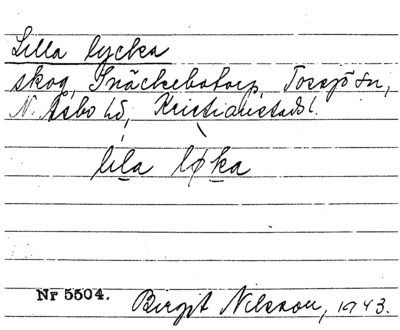 Lilla lycka
skog, Snäckebotorp, Tossjö sn,
N. Åsbo hd, Kristianstads l.
lila løka
Nr 5504. Birgit Nilsson, 1943.